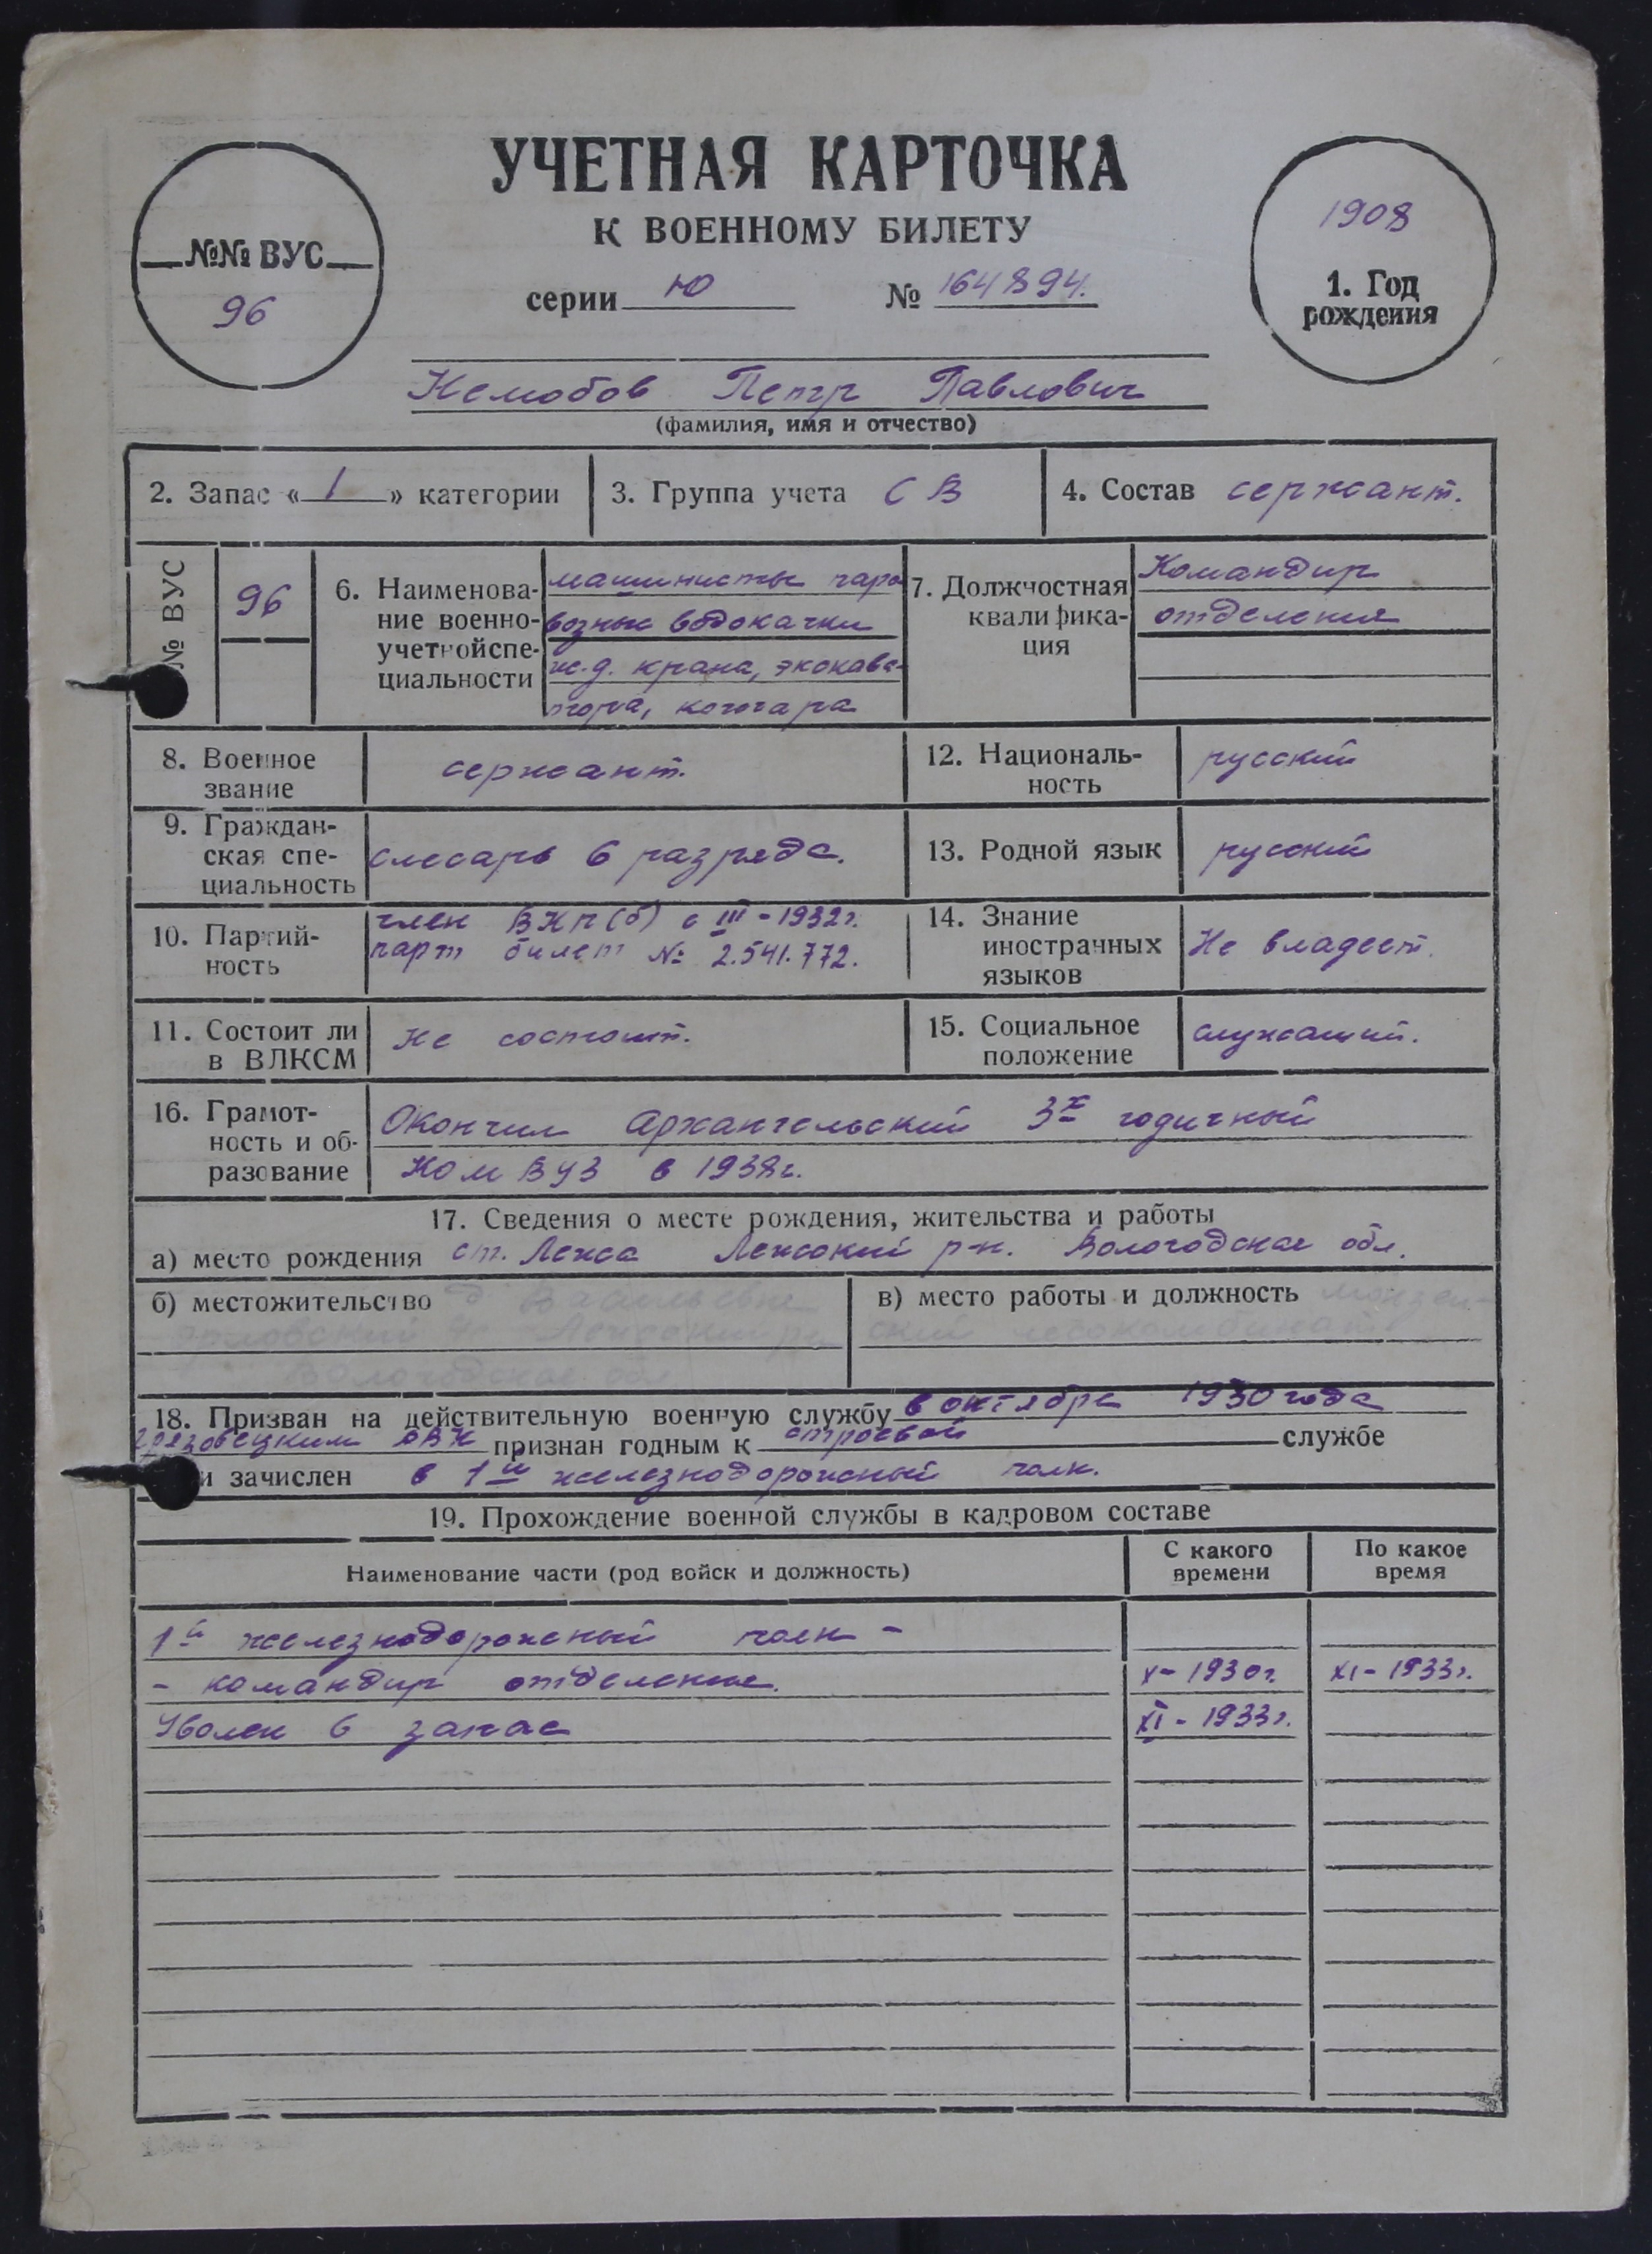 УЧЕТНАЯ КАРТОЧКА
К ВОЕННОМУ БИЛЕТУ
серии Ю № 164894.
№№ ВУС
96
1908
1. Год
рождения
Немобов Петр Павлович
(фамилия, имя и отчество)
2. Запас « 1 » категории
3. Группа учета СВ
4. Состав сержант.
№ ВУС
96
6. Наименова-
ние военно-
учетной спе-
циальности
машинисты паро
возные водокачки
ж.д. крана, экскава-
тора, кочегара
7. Должностная
квалифика-
ция
Командир
отделения
8. Военное
звание
сержант.
12. Националь-
ность
русский
9. Граждан-
ская спе-
циальность
слесарь 6 разряда.
13. Родной язык
русский
10. Партий-
ность
член ВКП(б) с III-1932г.
парт билет № 2.541.772.
14. Знание
иностранных
языков
Не владеет.
11. Состоит ли
в ВЛКСМ
Не состоит.
15. Социальное
положение
служащий.
16. Грамот-
ность и об-
разование
Окончил Архангельский 3х годичный
Ком ВУЗ в 1938г.
17. Сведения о месте рождения, жительства и работы
а) место рождения ст. Лежа Лежский р-н. Вологодская обл.
б) местожительство
Вологодская обл.
в) место работы и должность
18. Призван на действительную военную службу в октябре 1930 года
Грязовецким РВК признан годным к строевой службе
и зачислен в 1й железнодорожный полк.
19. Прохождение военной службы в кадровом составе
Наименование части (род войск и должность)
С какого
времени
По какое
время
1й железнодорожный полк -
- командир отделения. X-1930г. XI-1933г.
Уволен в запас XI-1933г.